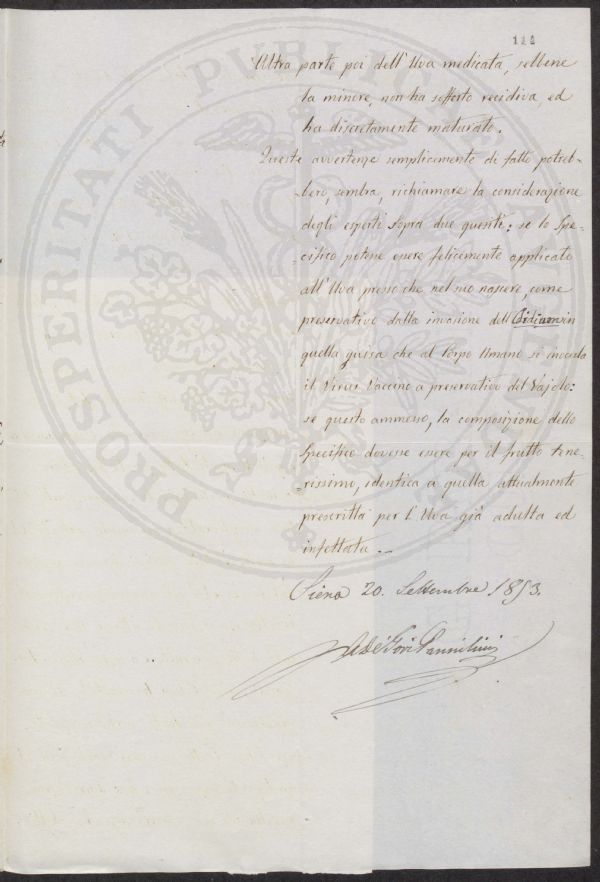 124
Altra parte poi dell'Uva medicata, sebbene
la minore, non ha sofferto recidiva, ed
ha discretamente maturato.
Queste avvertenze semplicemente di fatto potreb-
-bero, sembra, richiamare la considerazione
degli esperti sopra due quesiti: se lo Spe-
-cifico potesse essere felicemente applicato
all'Uva presso che nel suo nascere, come
preservativo dalla invasione dell'Oidium in
quella guisa che al Corpo Umano si innesta
il Virus Vaccino a preservativo del Vajolo:
se questo ammesso, la composizione dello
Specifico dovesse essere per il frutto tene-
-rissimo, identica a quella attualmente
prescritta per l'Uva già adulta ed
infettata.
Siena 20. Settembre 1853.
A de' Gori Pannilini
PROSPERITATI PUBLICAE